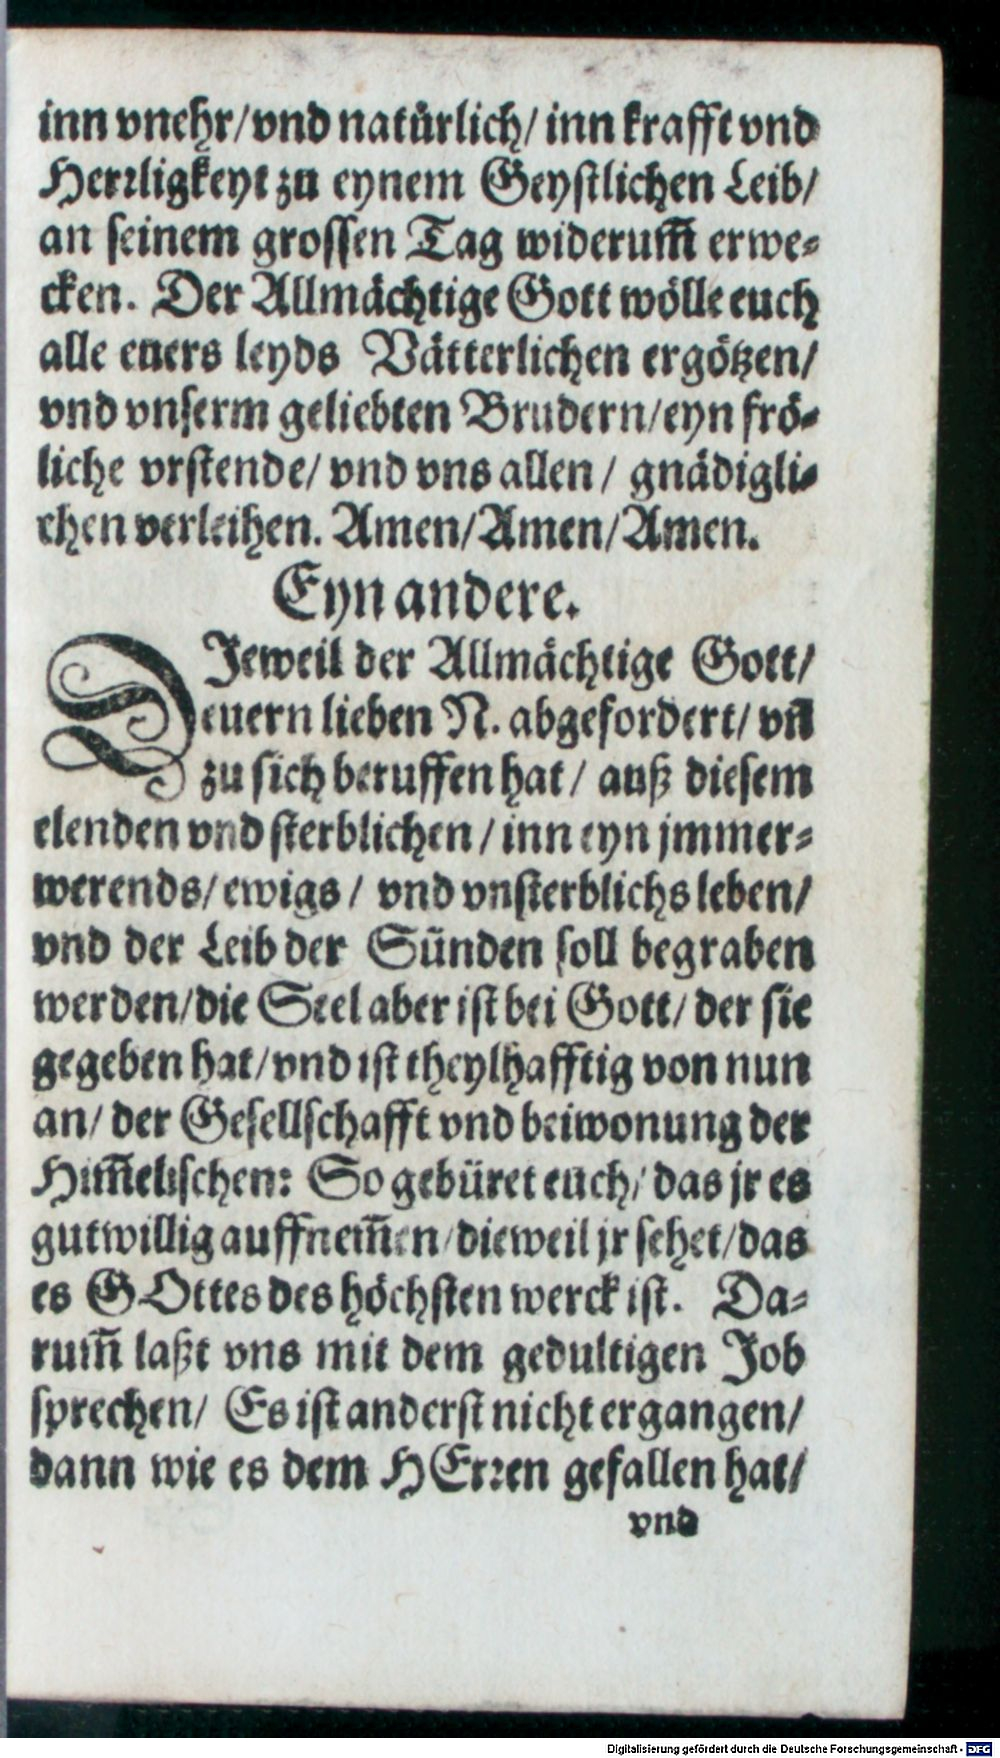 inn vnehr/vnd natürlich/ inn krafft vnd
Herꝛligkeyt zu eynem Geystlichen Leib/
an seinem grossen Tag widerum̄ erwe⸗
cken. Der Allmächtige Gott wölle euch
alle euers leyds Vätterlichen ergötzen/
vnd vnserm geliebten Brudern/eyn frö⸗
liche vrstende/ vnd vns allen/ gnädigli⸗
chen verleihen. Amen/Amen/Amen.
Eyn andere.
DJeweil der Allmächtige Gott/
euern lieben N. abgefordert/ vn̄
zu sich beruffen hat/ auß diesem
elenden vnd sterblichen/ inn eyn jmmer⸗
werends/ewigs/ vnd vnsterblichs leben/
vnd der Leib der Sünden soll begraben
werden/die Seel aber ist bei Gott/der sie
gegeben hat/vnd ist theylhafftig von nun
an/ der Gesellschafft vnd beiwonung der
Him̄elischen: So gebüret euch/ das jr es
gutwillig auffnem̄en/dieweil jr sehet/das
es GOttes des höchsten werck ist. Da⸗
rum̄ laßt vns mit dem gedultigen Job
sprechen/ Es ist anderst nicht ergangen/
dann wie es dem HErꝛen gefallen hat/
vnd
Digitalisierung gefördert durch die Deutsche Forschungsgemeinschaft - DFG